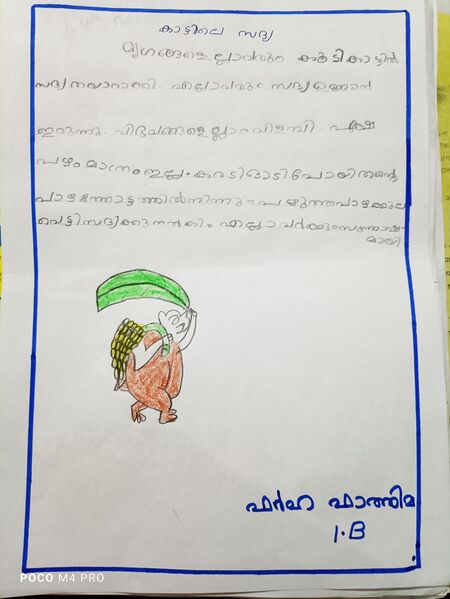 കാട്ടിലെ സദ്യ
മൃഗങ്ങളെല്ലാവരും കൂടി കാട്ടിൽ
സദ്യ തയാറാക്കി. എല്ലാവരും സദ്യ ഉണ്ണാൻ
ഇരുന്നു. വിഭവങ്ങളെല്ലാം വിളമ്പി. പക്ഷെ
പഴം മാത്രം ഇല്ല. കരടി ഓടി പോയി തന്റെ
പഴത്തോട്ടത്തിൽ നിന്നും പഴുത്ത പഴക്കുല
വെട്ടി സദ്യക്കു നൽകി. എല്ലാവർക്കും സന്തോഷ
മായി
ഫർഹ ഫാത്തിമ
1.B
POCO M4 PRO